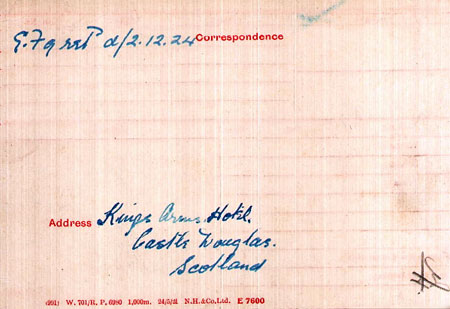 d/2.12.24 Correspondence
Address Kings Arms Hotel.
Castle Douglas.
Scotland
W. 701/R. P. 6980 1,000m. 24/5/21 N.H.&Co.Ltd. E 7600